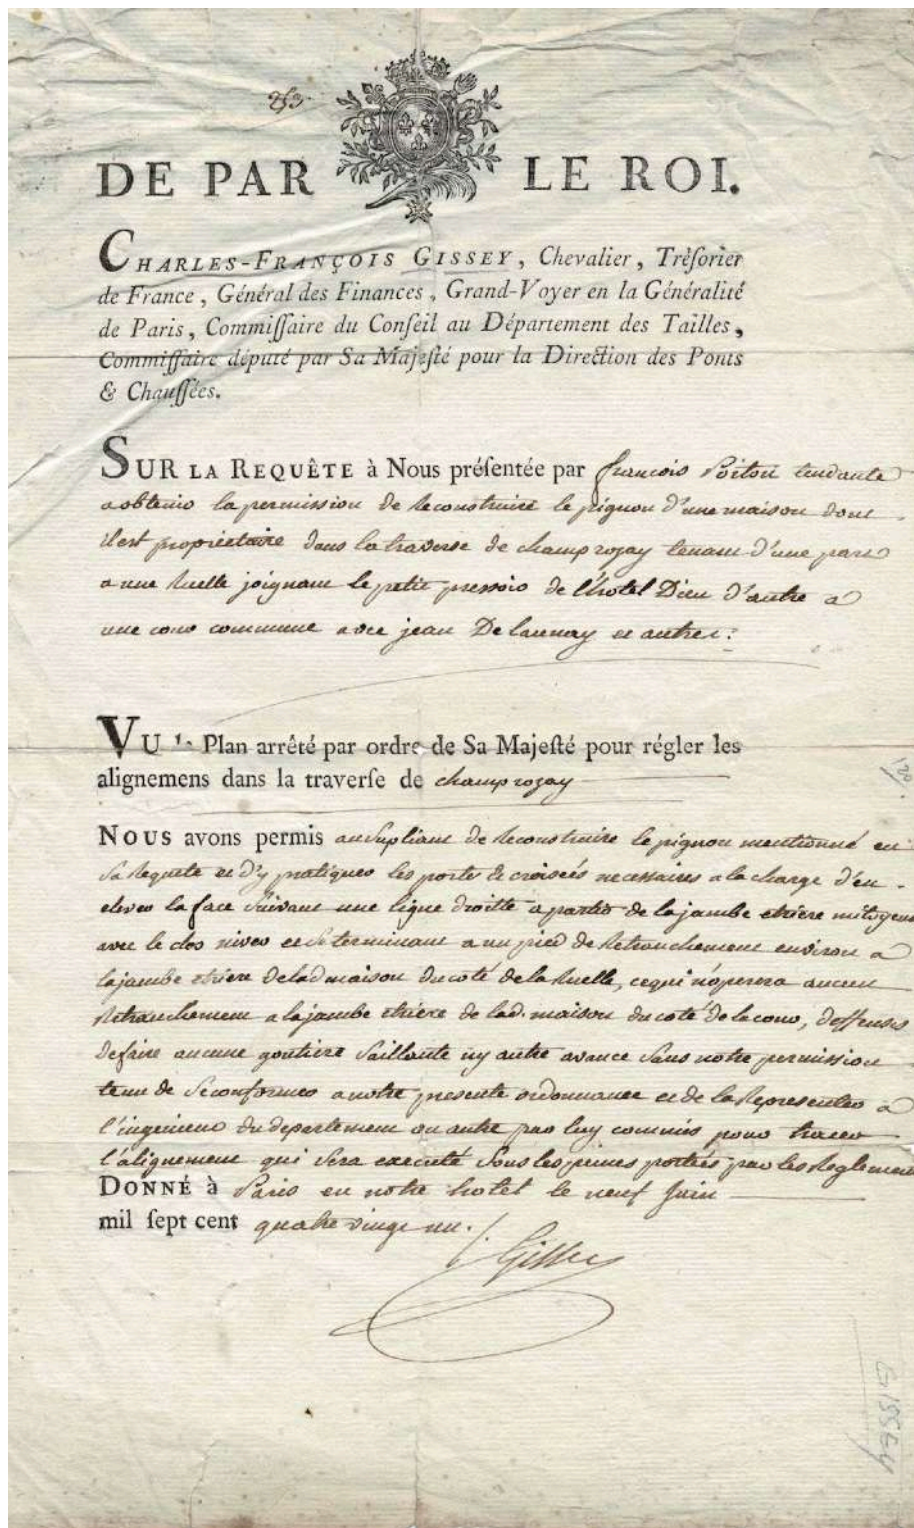 253.
DE PAR LE ROI.
CHARLES-FRANÇOIS GISSEY, Chevalier, Tréſorier
de France, Général des Finances, Grand-Voyer en la Généralité
de Paris, Commiſſaire du Conſeil au Département des Tailles,
Commiſſaire député par Sa Majeſté pour la Direction des Ponts
& Chauſſées.
SUR LA REQUÊTE à Nous préſentée par françois Poitou tendante
a obtenir la permission de Reconstruire le pignon d'une maison dont
il est propriétaire dans la traverse de champrozay tenant d'une part
a une Ruelle joignant le petit pressoir de l'hotel Dieu d'autre a
une cour commune avec jean Delaunay et autres:
VU le Plan arrêté par ordre de Sa Majeſté pour régler les
alignemens dans la traverſe de champrozay
NOUS avons permis au Supliant de Reconstruire le pignon mentionné en
sa Requete et d'y pratiquer les portes & croisées necessaires a la charge d'en
elever la face suivant une ligne droitte a partir de la jambe etriere mitoyenne
avec le clos et se terminant a un pied de Retranchement environ a
la jambe etriere de lad maison du coté de la Ruelle, ce qui n'operera aucun
Retranchement a la jambe etriere de lad. maison du coté de la cour, deffenses
de faire aucune goutiere saillante ny autre avance sans notre permission
tenu de se conformer a notre presente ordonnance et de la Representer a
l'ingenieur du departement ou autre par luy commis pour tracer
l'alignement qui sera executé sous les peines portées par les Reglemens
DONNÉ à Paris en notre hotel le neuf Juin
mil ſept cent quatre vingt un.
Gissey
GISSEY